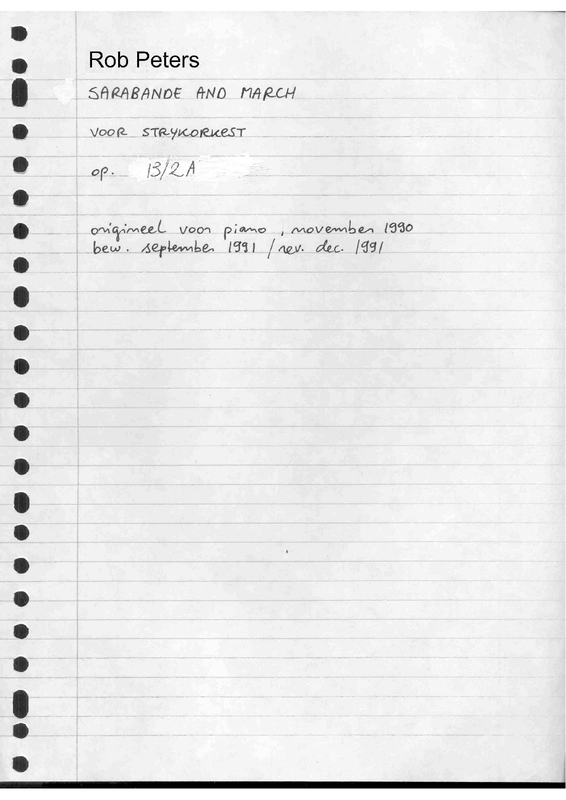 Rob Peters
SARABANDE AND MARCH
VOOR STRYKORKEST
op. 13/2A
origineel voor piano, november 1990
bew. september 1991 / rev. dec. 1991